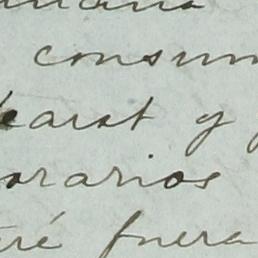 consum
earst y
orarios
ré fuera